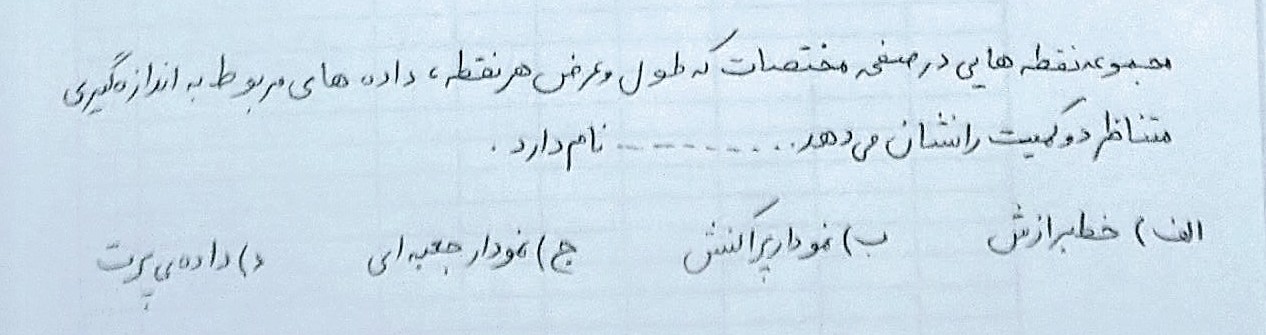 مجموعه نقطه هایی در صفحه مختصات که طول و عرض هر نقطه، داده های مربوط به اندازه‌گیری
متناظر دو کمیت را نشان می دهد .......... نام دارد .
الف) خط برازش ب) نمودار پراکنش ج) نمودار جعبه ای د) داده‌ی پرت